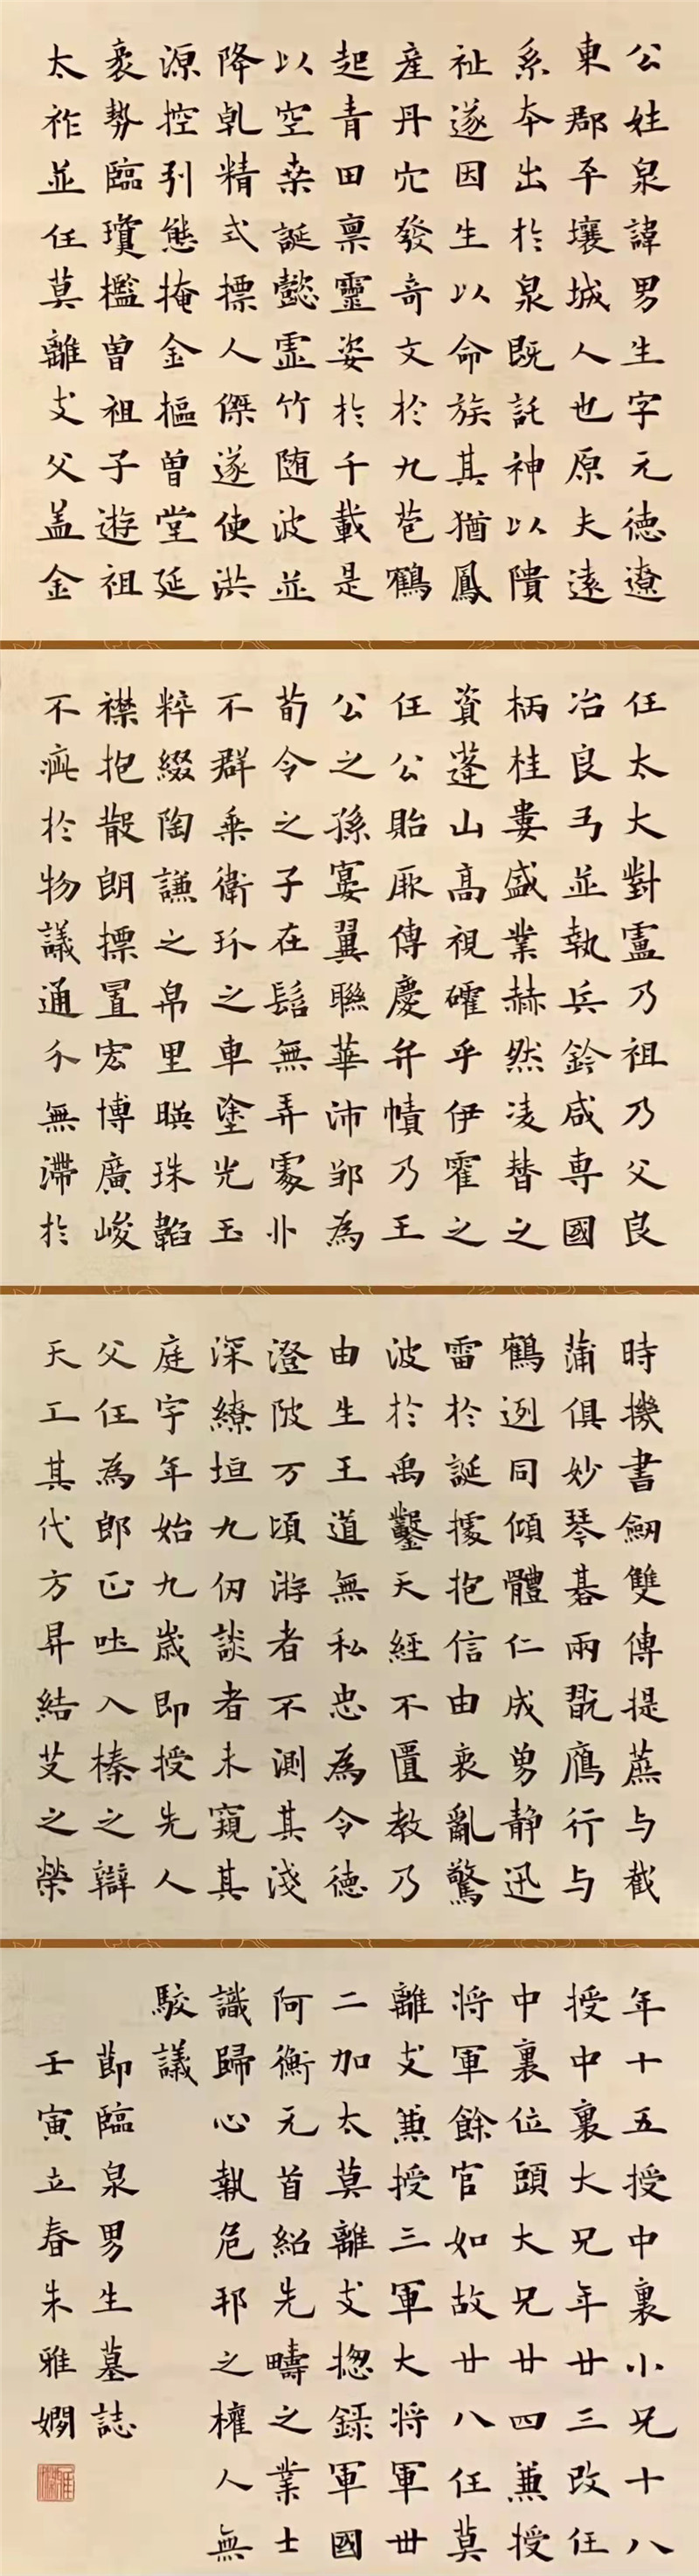 公姓泉諱男生字元德遼
東郡平壤城人也原夫遠
系本出於泉既託神以隤
祉遂因生以命族其猶鳳
產丹穴發奇文於九苞鶴
起青田稟靈姿於千載是
以空桑誕懿虛竹随波並
降乹精式摽人傑遂使洪
源控引態掩金樞曾堂延
袤勢臨瓊檻曾祖子遊祖
太祚並任莫離支父盖金
任太大對盧乃祖乃父良
冶良弓並執兵鈐咸專國
柄桂婁盛業赫然凌替之
資蓬山高視確乎伊霍之
任公貽厥傳慶弁幘乃王
公之孫宴翼聯華沛鄒為
荀令之子在髫無弄處丱
不群乘衛玠之車塗光玉
粹綴陶謙之帛里暎珠韜
襟抱散朗摽置宏博廣峻
不疵於物議通介無滯於
時機書劒雙傳提蔗与截
蒲俱妙琴碁兩翫鴈行与
鶴迾同傾體仁成勇静迅
雷於誕據抱信由衷亂驚
波於禹鑿天經不匱教乃
由生王道無私忠為令德
澄陂万頃游者不測其淺
深繚垣九仞談者未窺其
庭宇年始九歲即授先人
父任為郎正吐入榛之辯
天工其代方昇結艾之榮
年十五授中裏小兄十八
授中裏大兄年廿三改任
中裏位頭大兄廿四兼授
將軍餘官如故廿八任莫
離支兼授三軍大将軍卅
二加太莫離支揔錄軍國
阿衡元首紹先疇之業士
識歸心執危邦之權人無
駮議
節臨泉男生墓誌
壬寅立春朱雅嫻